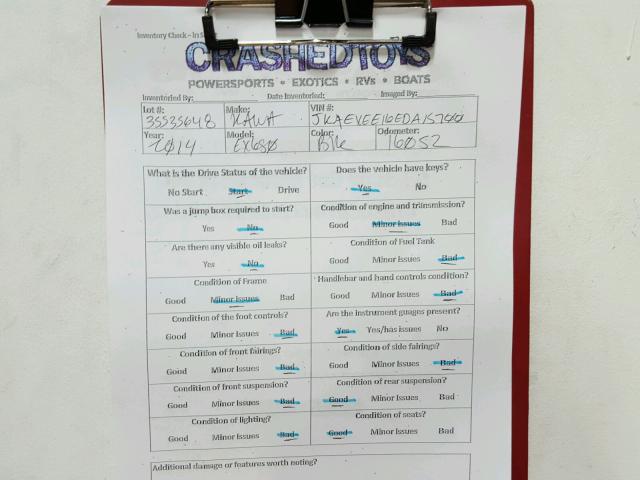 Inventory Check - In S
CRASHEDTOYS
POWERSPORTS • EXOTICS • RVs • BOATS
Inventoried By: Date Inventoried: Imaged By:
Lot #: Make: VIN #:
35535648 KAWA JKAEVEE16EDA15700
Year: Model: Color: Odometer:
2014 EX650 Blk 16052
What is the Drive Status of the vehicle? Does the vehicle have keys?
No Start Start Drive Yes No
Was a jump box required to start? Condition of engine and transmission?
Yes No Good Minor Issues Bad
Are there any visible oil leaks? Condition of Fuel Tank
Yes No Good Minor Issues Bad
Condition of Frame Handlebar and hand controls condition?
Good Minor Issues Bad Good Minor Issues Bad
Condition of the foot controls? Are the instrument guages present?
Good Minor Issues Bad Yes Yes/has issues No
Condition of front fairings? Condition of side fairings?
Good Minor Issues Bad Good Minor Issues Bad
Condition of front suspension? Condition of rear suspension?
Good Minor Issues Bad Good Minor Issues Bad
Condition of lighting? Condition of seats?
Good Minor Issues Bad Good Minor Issues Bad
Additional damage or features worth noting?